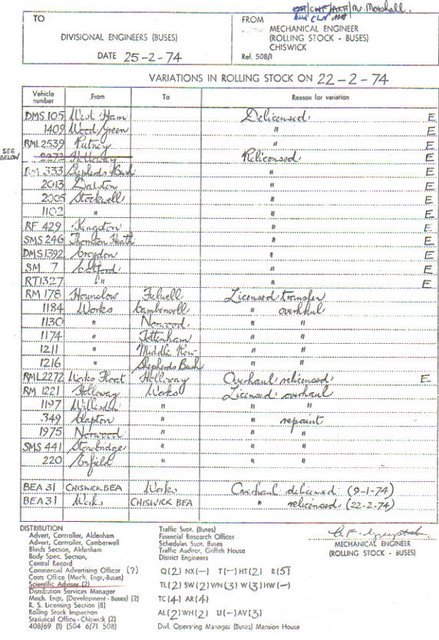 TO
FROM
DIVISIONAL ENGINEERS (BUSES)
MECHANICAL ENGINEER
(ROLLING STOCK - BUSES)
CHISWICK
DATE 25-2-74
Ref. 508/1
VARIATIONS IN ROLLING STOCK ON 22-2-74
Vehicle number From To Reason for variation
DMS 105 West Ham Delicensed E
1409 Wood Green " E
RML 2539 Putney " E
SEE BELOW 2272 Holloway Relicensed
RM 333 Shepherds Bush " E
2013 Dalston " E
2005 Stockwell " E
1102 " " E
RF 429 Kingston " E
SMS 246 Thornton Heath " E
DMS 1392 Croydon " E
SM 7 Catford " E
RT 1327 " " E
RM 178 Hounslow Fulwell Licensed transfer
1184 Works Camberwell " overhaul
1130 " Norwood " "
1174 " Tottenham " "
1211 " Middle Row " "
1216 " Shepherds Bush " "
RML 2272 Works Float Holloway Overhaul relicensed E
RM 1221 Holloway Works Licensed overhaul
1197 Willesden " " "
349 Clapton " " repaint
1975 Norwood " " "
SMS 441 Stonebridge " " "
220 Enfield " " "
BEA 31 CHISWICK BEA Works Overhaul delicensed (9-1-74)
BEA 31 Works CHISWICK BEA " relicensed (22-2-74)
MECHANICAL ENGINEER
(ROLLING STOCK - BUSES)
DISTRIBUTION
Advert. Controller, Aldenham
Advert. Controller, Camberwell
Blinds Section, Aldenham
Body Spec. Section,
Central Record
Commercial Advertising Officer (7)
Costs Office (Mech. Engr.-Buses)
Scientific Adviser (2)
Distribution Services Manager
Mech. Engr. (Development - Buses) (2)
R. S. Licensing Section (8)
Rolling Stock Inspection
Statistical Office - Chiswick (2)
408/69 (1) (504 6/71 508)
Traffic Supt. (Buses)
Financial Research Officer
Schedules Supt. Buses
Traffic Auditor, Griffith House
District Engineers
Q(2) NX(-) T(-) HT(2) R(5)
TL(2) SW(2) VN(3) W(3) HW(-)
TC(4) AR(4)
AL(2) WH(2) U(-) AV(3)
Divl. Operating Manager (Buses) Mansion House